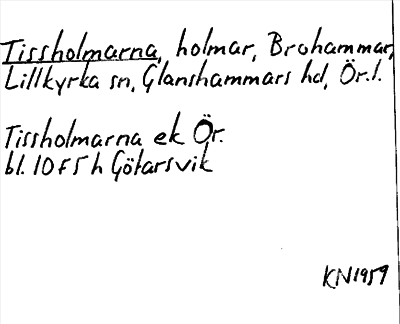 Tissholmarna, holmar, Brohammar,
Lillkyrka sn, Glanshammars hd, Ör.l.
Tissholmarna ek Ör.
bl. 10 F 5 h Götarsvik
KN 1959